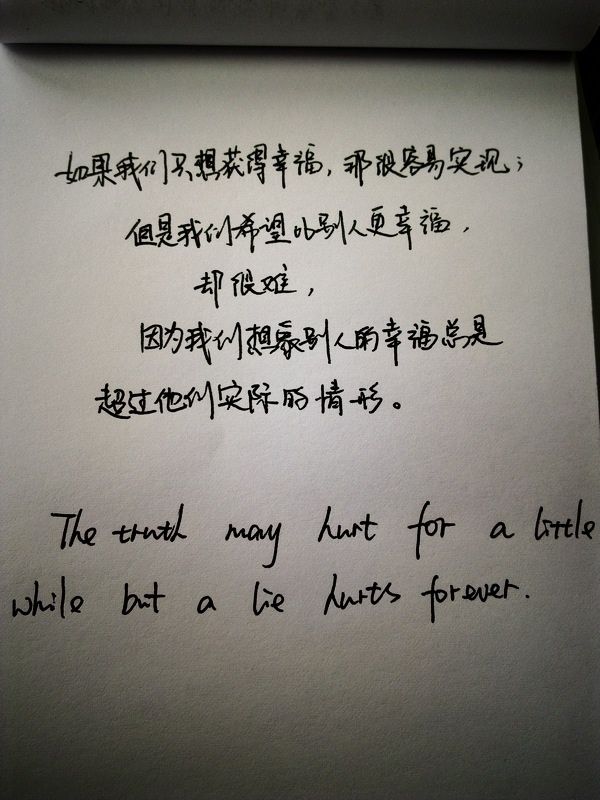 如果我们只想获得幸福，那很容易实现；
但是我们希望比别人更幸福，
却很难，
因为我们想象别人的幸福总是
超过他们实际的情形。
The truth may hurt for a little
while but a lie hurts forever.